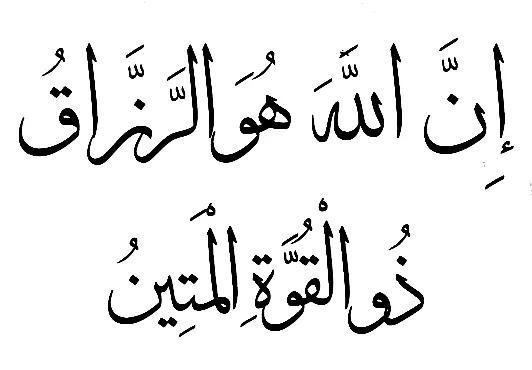 إِنَّ اللَّهَ هُوَ الرَّزَّاقُ
ذُو الْقُوَّةِ الْمَتِينُ